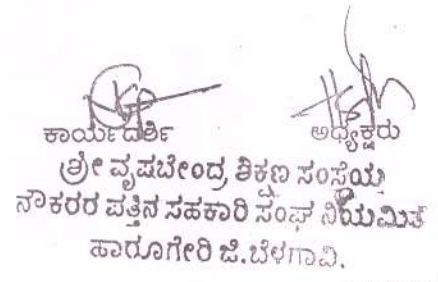 ಕಾರ್ಯದರ್ಶಿ ಅಧ್ಯಕ್ಷರು
ಶ್ರೀ ವೃಷಬೇಂದ್ರ ಶಿಕ್ಷಣ ಸಂಸ್ಥೆಯ
ನೌಕರರ ಪತ್ತಿನ ಸಹಕಾರಿ ಸಂಘ ನಿಯಮಿತ
ಹಾರೂಗೇರಿ ಜಿ.ಬೆಳಗಾವಿ.